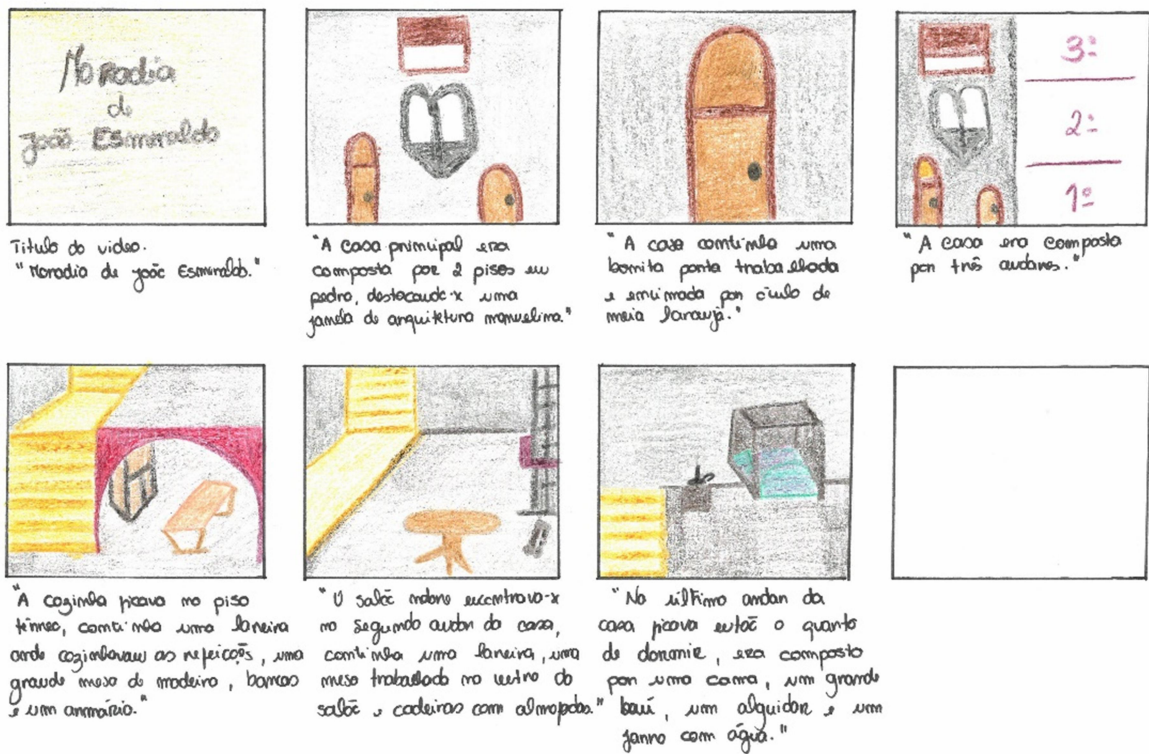 Moradia
de
João Esmeraldo
Titulo do video.
"Moradia de João Esmeraldo."
"A casa principal era
composta por 2 pisos em
pedra, destacando-se uma
janela de arquitetura manuelina."
"A casa continha uma
bonita porta trabalhada
e encimada por círculo de
meia laranja."
3º
2º
1º
"A casa era composta
por três andares."
"A cozinha ficava no piso
térreo, continha uma lareira
onde cozinhavam as refeições, uma
grande mesa de madeira, bancos
e um armário."
"O salão nobre encontrava-se
no segundo andar da casa,
continha uma lareira, uma
mesa trabalhada no centro do
salão e cadeiras com almofadas."
"No último andar da
casa ficava então o quarto
de dormir, era composto
por uma cama, um grande
baú, um alguidar e um
jarro com água."